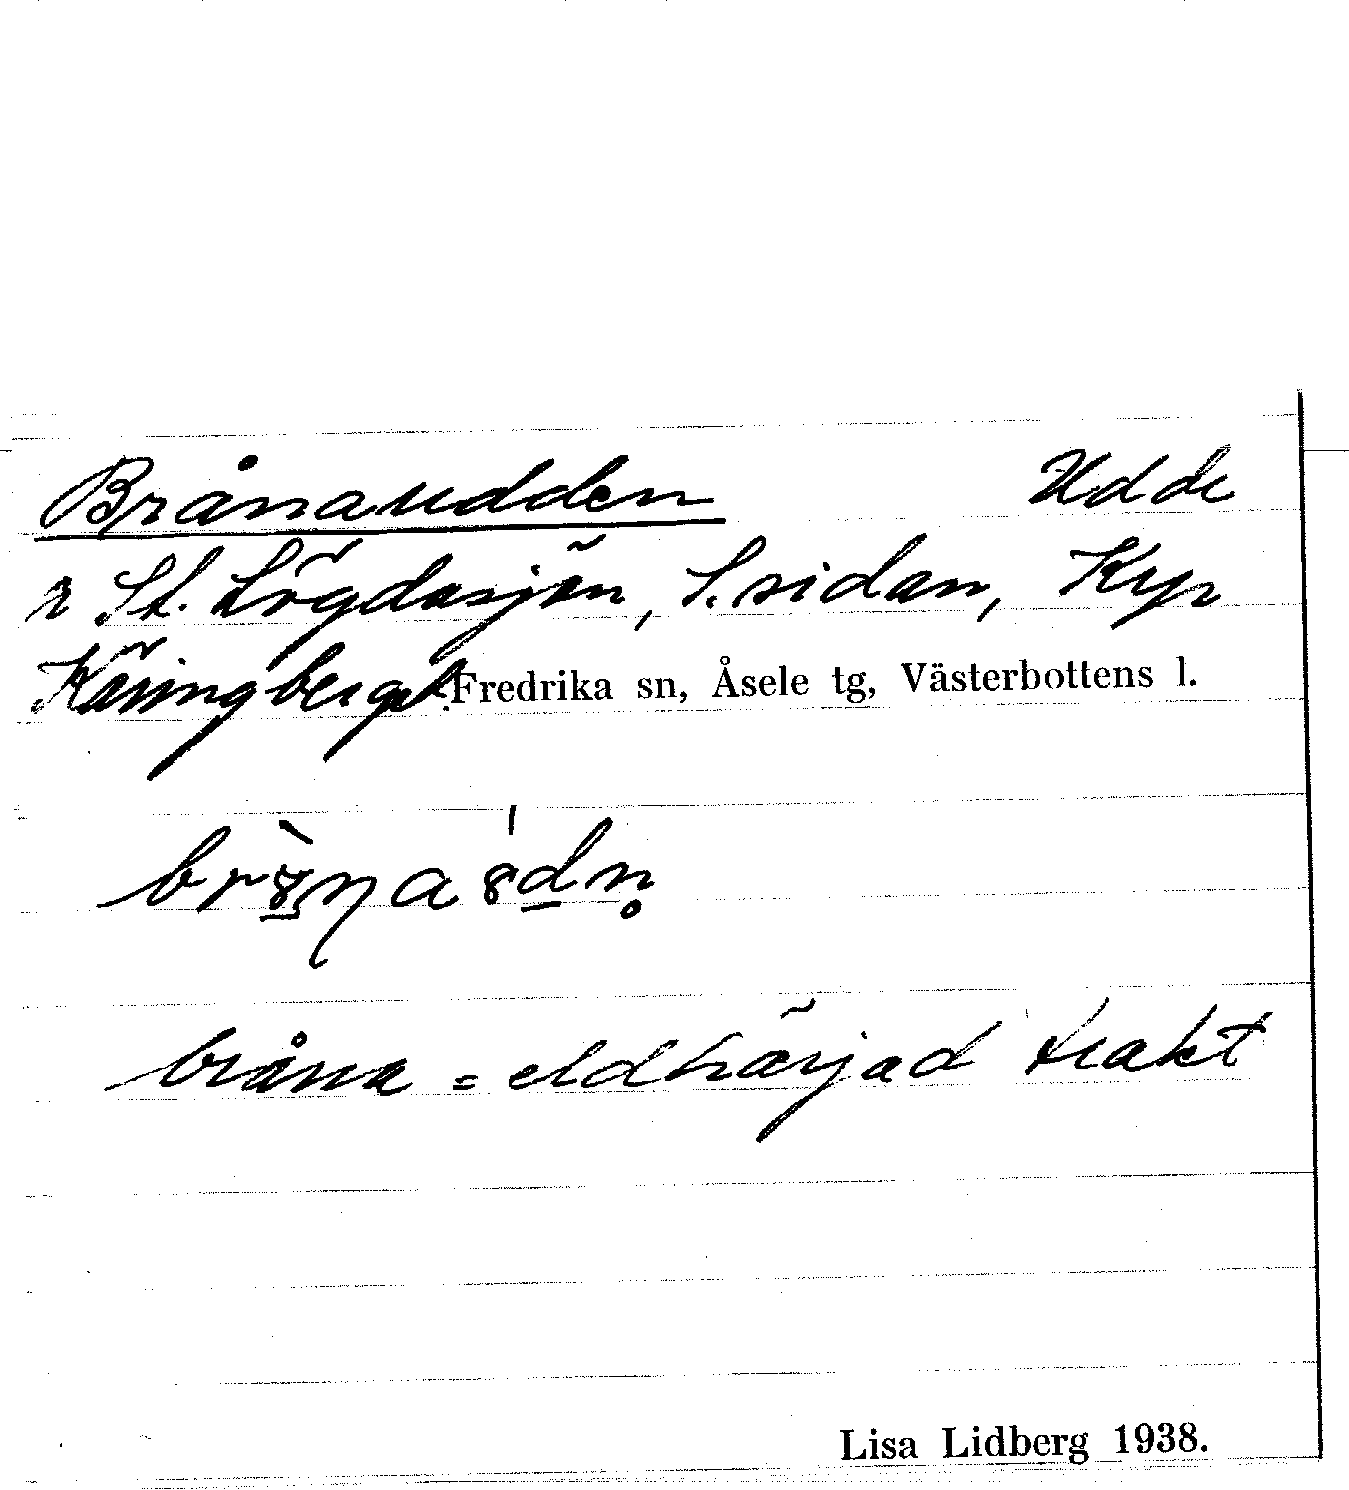 Brånaudden Udde
i St. Lögdasjön, S. sidan, Kyr
Käringberget Fredrika sn, Åsele tg, Västerbottens l.
bråna = eldhärjad trakt
Lisa Lidberg 1938.